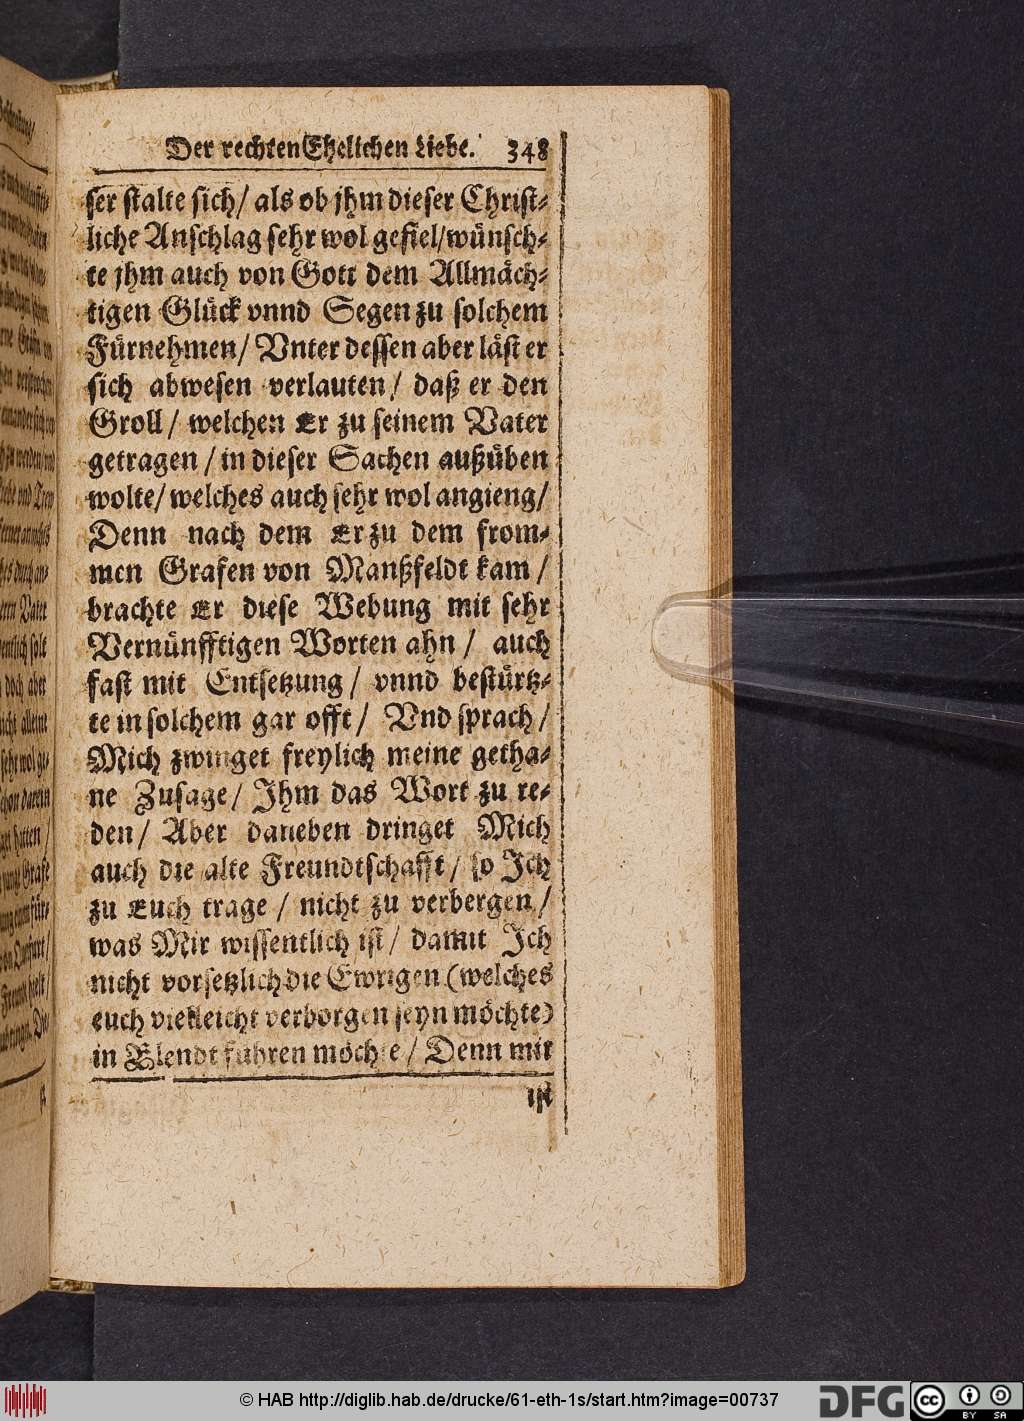 Der rechten Ehelichen Liebe. 348
ser stalte sich / als ob jhm dieser Christ-
liche Anschlag sehr wol gefiel / wünsch-
te jhm auch von Gott dem Allmäch-
tigen Glück vnnd Segen zu solchem
Fürnehmen / Vnter dessen aber läst er
sich abwesen verlauten / daß er den
Groll / welchen Er zu seinem Vater
getragen / in dieser Sachen außüben
wolte / welches auch sehr wol angieng /
Denn nach dem Er zu dem from-
men Grafen von Manßfeldt kam /
brachte Er diese Webung mit sehr
Vernünfftigen Worten ahn / auch
fast mit Entsetzung / vnnd bestürtz-
te in solchem gar offt / Vnd sprach /
Mich zwinget freylich meine getha-
ne Zusage / Ihm das Wort zu re-
den / Aber daneben dringet Mich
auch die alte Freundtschafft / so Ich
zu Euch trage / nicht zu verbergen /
was Mir wissentlich ist / damit Ich
nicht vorsetzlich die Ewrigen (welches
euch vielleicht verborgen seyn möchte)
in Elendt führen möchte / Denn mir
ist
© HAB http://diglib.hab.de/drucke/61-eth-1s/start.htm?image=00737
DFG
cc
BY SA